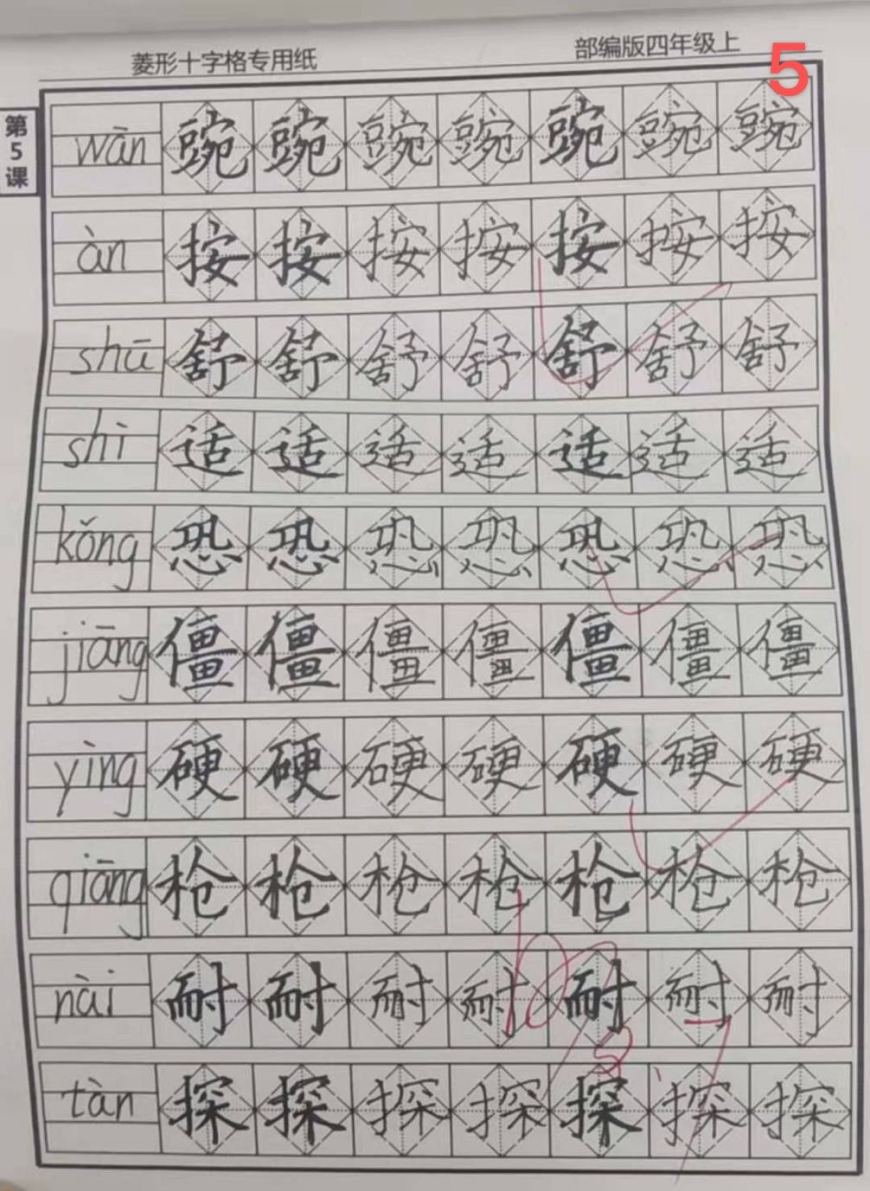 菱形十字格专用纸 部编版四年级上
5
第5课
wān 豌豌豌豌豌豌豌
àn 按按按按按按按
shū 舒舒舒舒舒舒舒
shì 适适适适适适适
kǒng 恐恐恐恐恐恐恐
jiāng 僵僵僵僵僵僵僵
yìng 硬硬硬硬硬硬硬
qiāng 枪枪枪枪枪枪枪
nài 耐耐耐耐耐耐耐
tàn 探探探探探探探